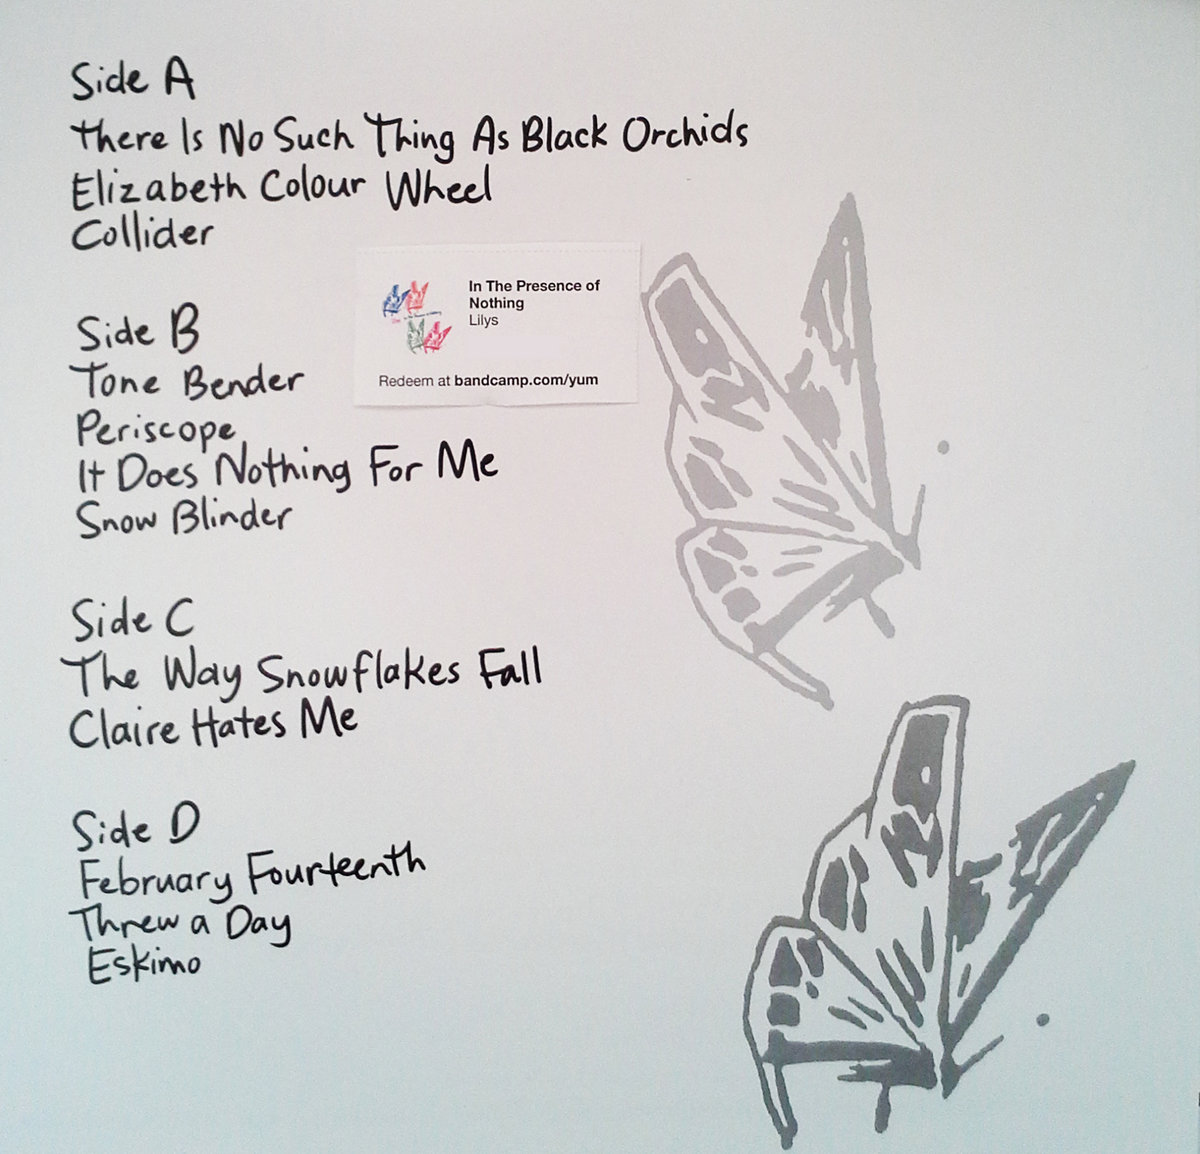 Side A
There Is No Such Thing As Black Orchids
Elizabeth Colour Wheel
Collider
In The Presence of
Nothing
Lilys
Redeem at bandcamp.com/yum
Side B
Tone Bender
Periscope
It Does Nothing For Me
Snow Blinder
Side C
The Way Snowflakes Fall
Claire Hates Me
Side D
February Fourteenth
Threw a Day
Eskimo